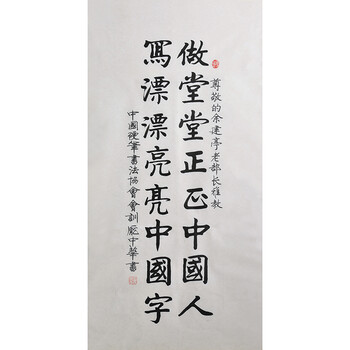 尊敬的余建亭老部长雅教
做堂堂正正中國人
寫漂漂亮亮中國字
中國硬筆書法協會會訓 龐中華書